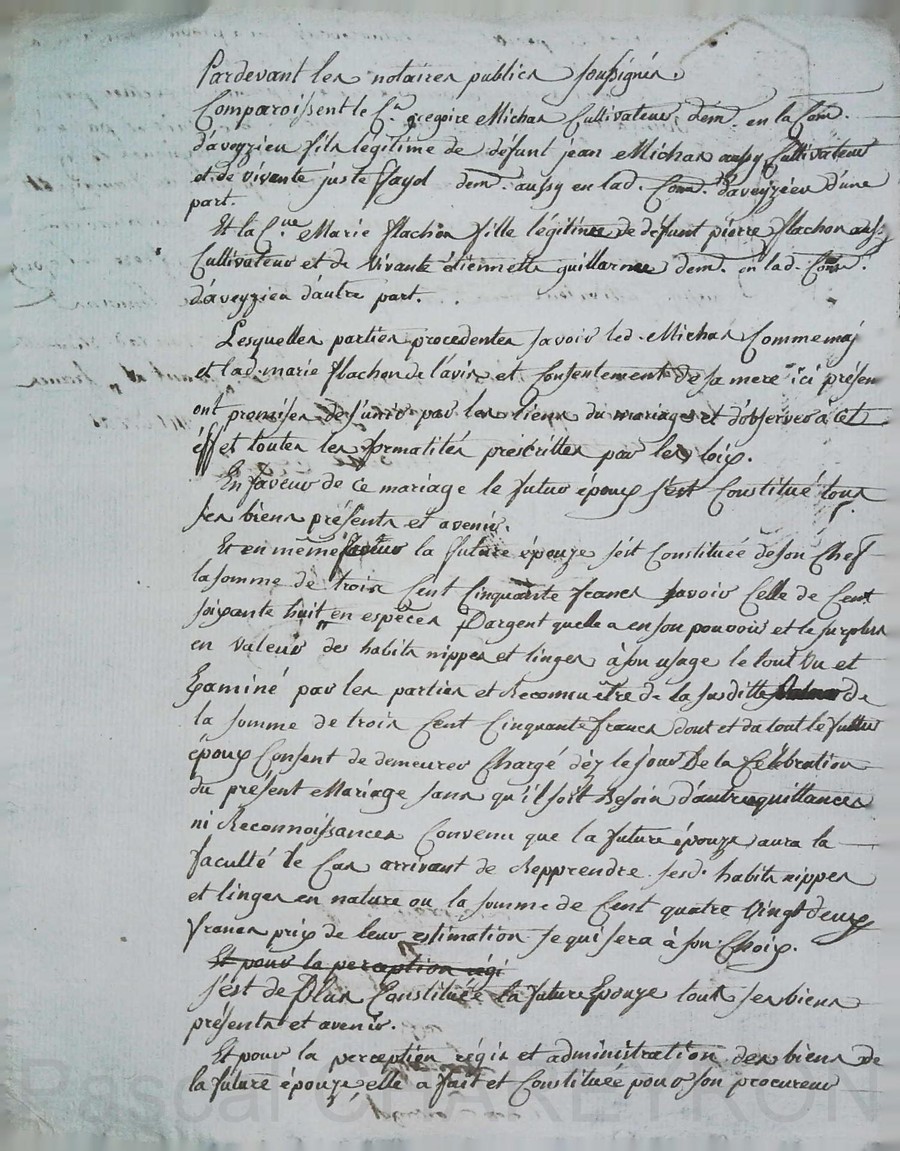 Pardevant les notaires publics soussignés
Comparoissent le C.en gregoire Michas Cultivateur dem. en la Com.
d'aveyzieu fils légitime de défunt jean Michas aussy Cultivateur
et de vivante juste fayol dem. aussy en lad. Com. d'aveyzieu d'une
part.
Et la C.ne Marie flachon fille légitime de défunt pierre flachon auss.
Cultivateur et de vivante étiennette guillarme dem. en lad. Com.
d'aveyzieu d'autre part.
Lesquelles parties procedentes savoir led. Michas Comme maj
et lad. marie flachon de l'avis et Consentement de sa mere ici présen
ont promises de s'unir par les liens du mariage et d'observer à cet
éffet toutes les formalités prescrittes par les loix.
En faveur de ce mariage le futur époux s'est Constitué tous
ses biens présents et avenir.
Et en même faveur la future épouze s'est Constituée de son Chef
la somme de trois Cent Cinquante francs savoir Celle de Cent
soixante huit en espèces D'argent quelle a en son pouvoir et le surplus
en valeur des habits nippes et linges à son usage le tout vu et
Examiné par les parties et Reconnu être de la susditte de
la somme de trois Cent Cinquante francs dont et du tout le futur
époux Consent de demeurer Chargé dèz le jour De la Célébration
du présent Mariage sans qu'il soit Besoin d'autre quittances
ni Reconnoissances Convenu que la future épouze aura la
faculté le Cas arrivant de Repprendre sesd. habits nippes
et linges en nature ou la somme de Cent quatre Vingt deux
francs prix de leur estimation Ce qui sera à son Choix.
Et pour la perception régi
s'est de Plus Constituée la future Epouze tous ses biens
présents et avenir.
Et pour la perception régie et administration des biens de
la future épouze elle a fait et Constituée pour son procureur
Pascal CHAREYRON